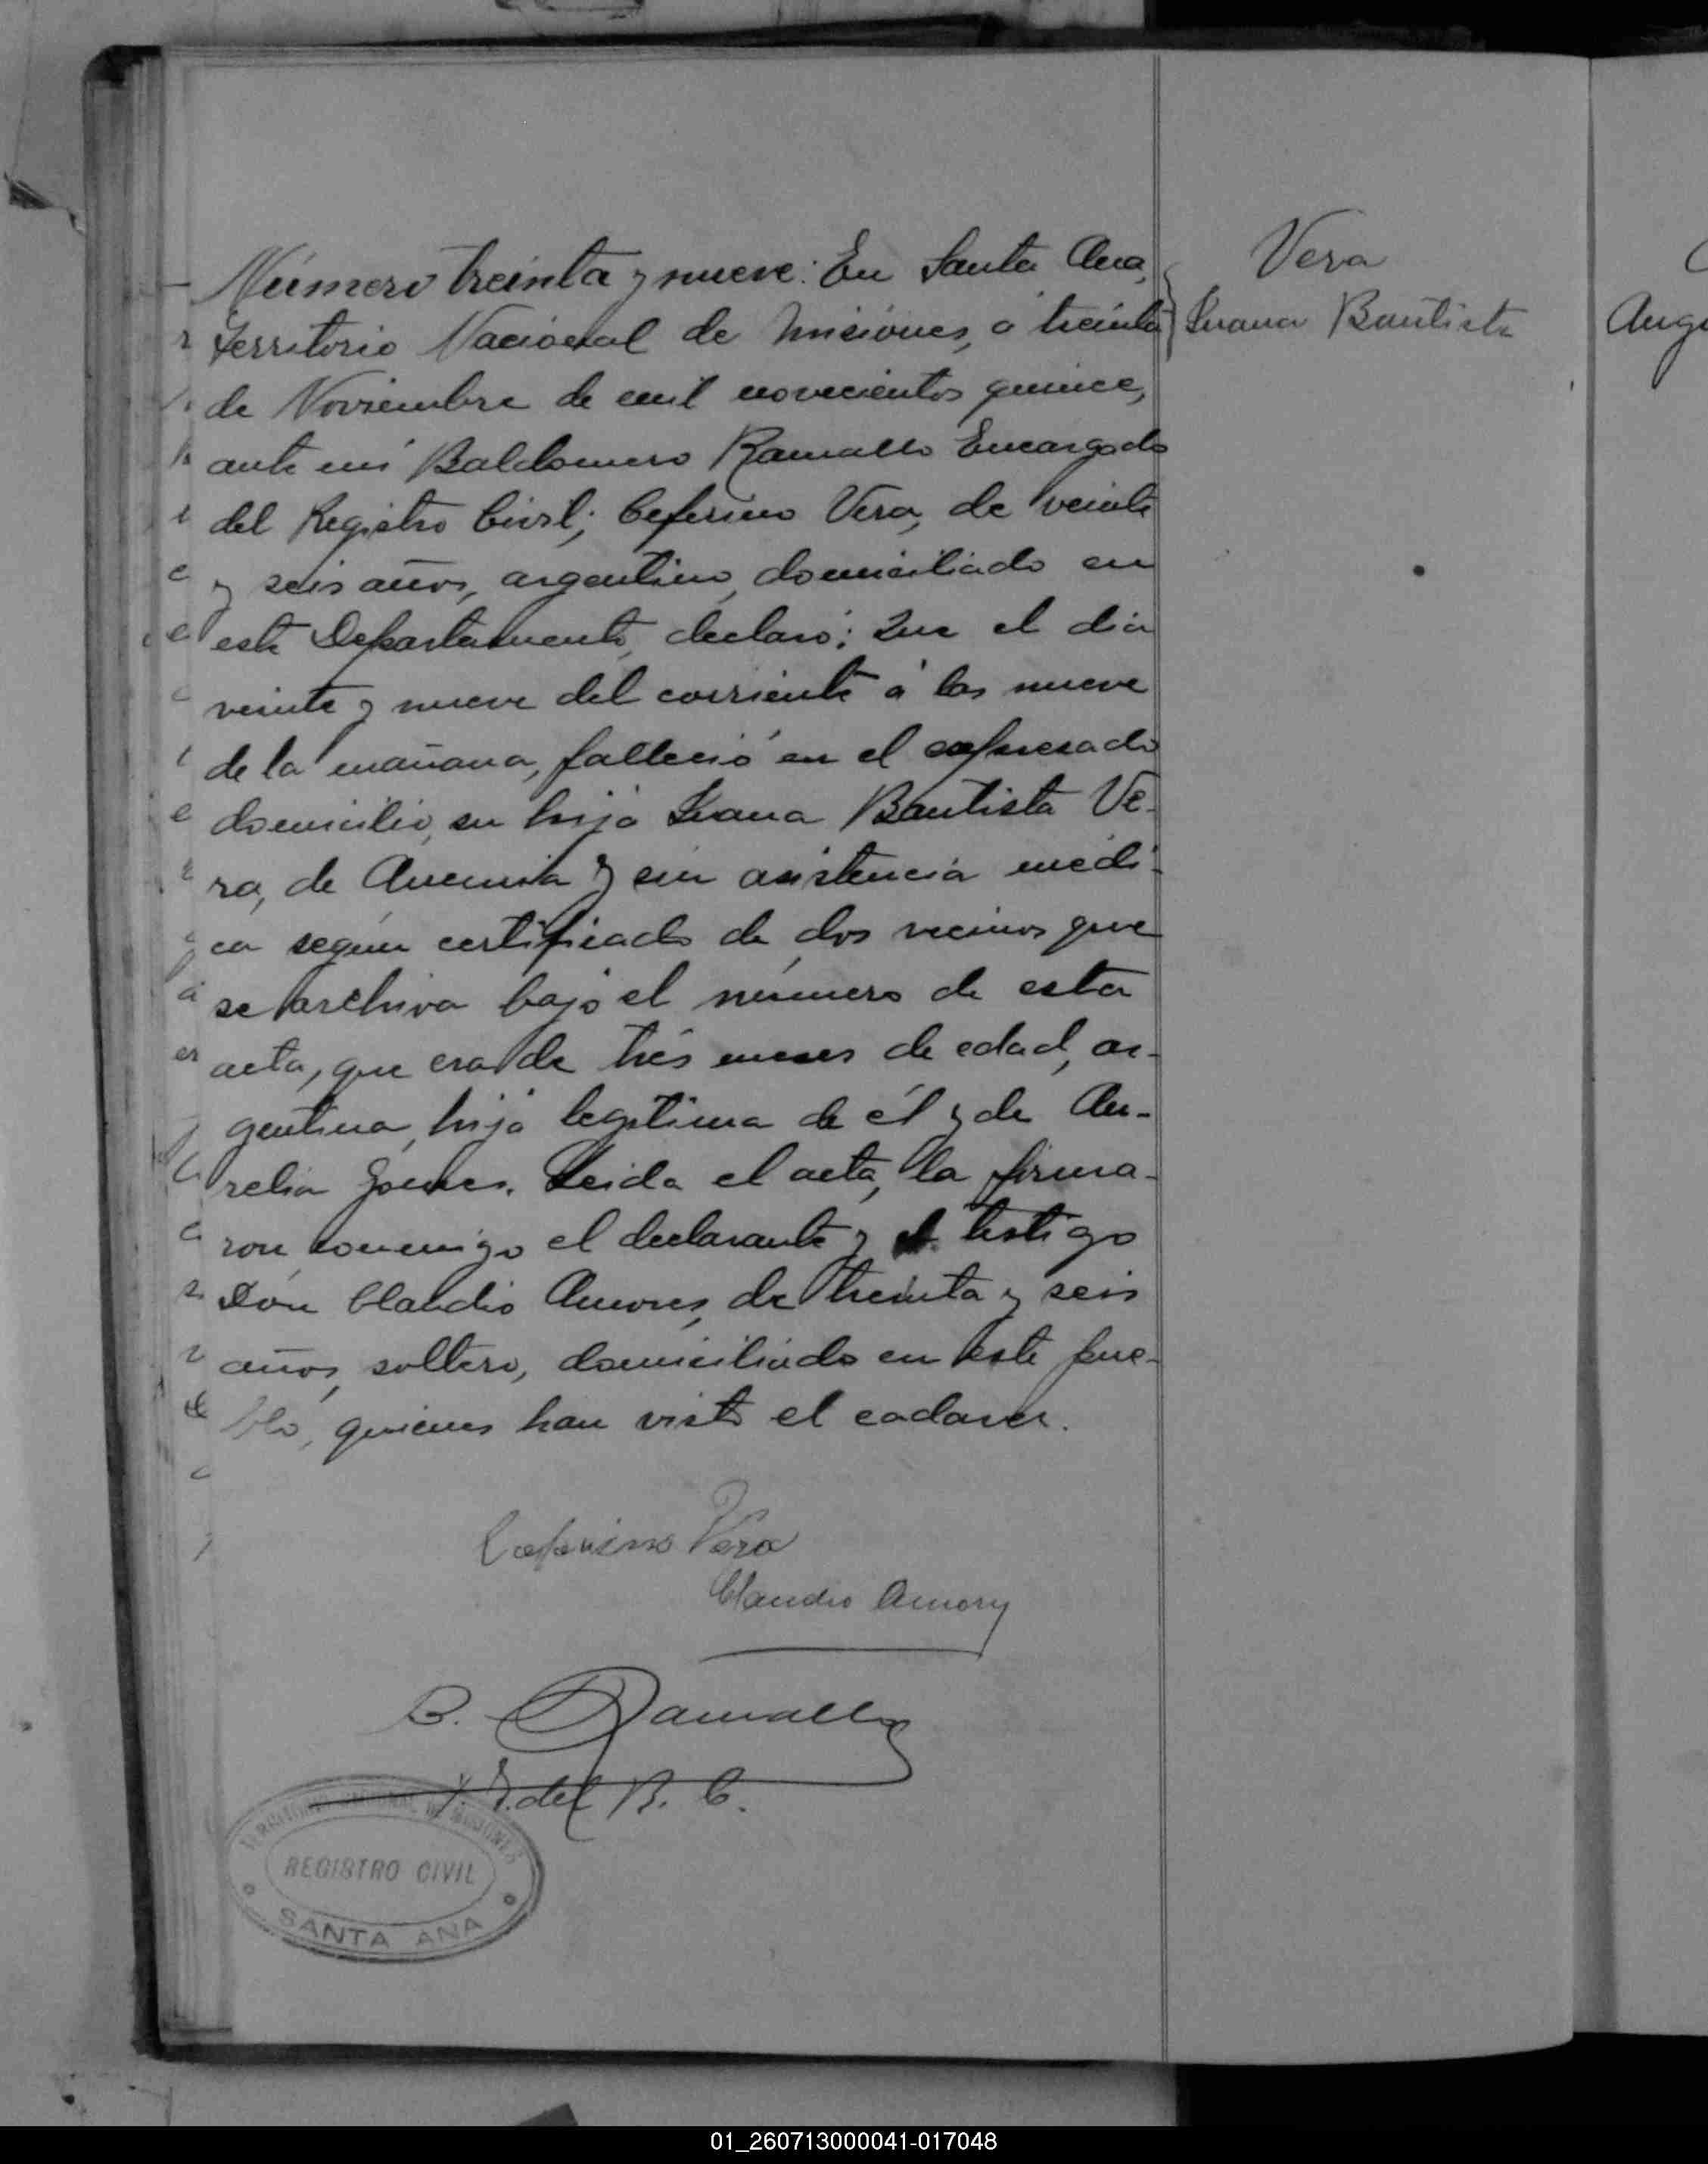 Número treinta y nueve: En Santa Ana,
Territorio Nacional de Misiones, á treinta
de Noviembre de mil novecientos quince,
ante mí Baldomero Ramallo Encargado
del Registro Civil; Ceferino Vera, de veinte
y seis años, argentino, domiciliado en
este Departamento, declaró: Que el dia
veinte y nueve del corriente á las nueve
de la mañana, falleció en el expresado
domicilio, su hija Juana Bautista Ve-
ra, de Anemia y sin asistencia médi-
ca según certificado de dos vecinos que
se archiva bajo el número de esta
acta, que era de trés meses de edad, ar-
gentina, hija legítima de él y de Au-
relia Gomes. Leida el acta, la firma-
ron conmigo el declarante y el testigo
Dón Claudio Amores, de treinta y seis
años, soltero, domiciliado en este pue-
blo, quienes han visto el cadaver.
Ceferino Vera
Claudio Amory
B. Ramallo
E. del R. C.
TERRITORIO NACIONAL DE MISIONES
REGISTRO CIVIL
SANTA ANA
Vera
Juana Bautista
Aug
01_260713000041-017048